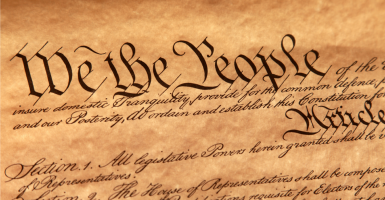 We the People of the
insure domestic Tranquility, provide for the common defence,
and our Posterity, do ordain and establish this Constitution for
Article
Section. 1. All legislative Powers herein granted shall be
of Representatives.
Section. 2. The House of Representatives shall be compose
Qualifications requisite for Electors of the